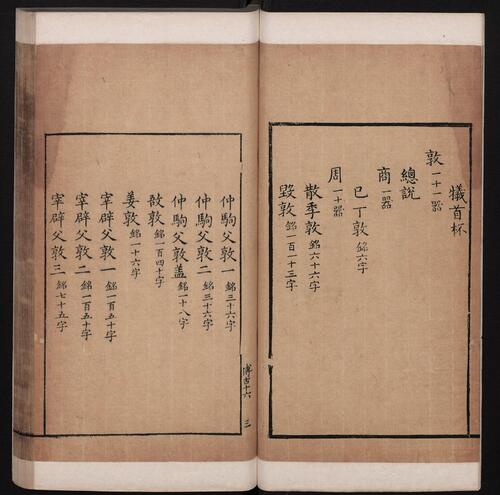 犧首杯
敦一十一器
總說
商一器
已丁敦銘六字
周一十器
散季敦銘六十六字
毀敦銘一百一十三字
仲駒父敦一銘三十六字
仲駒父敦二銘三十六字
仲駒父敦蓋銘一十八字
敔敦銘一百四十字
姜敦銘一十六字
宰辟父敦一銘一百五十字
宰辟父敦二銘一百五十字
宰辟父敦三銘七十五字
博古十六 三